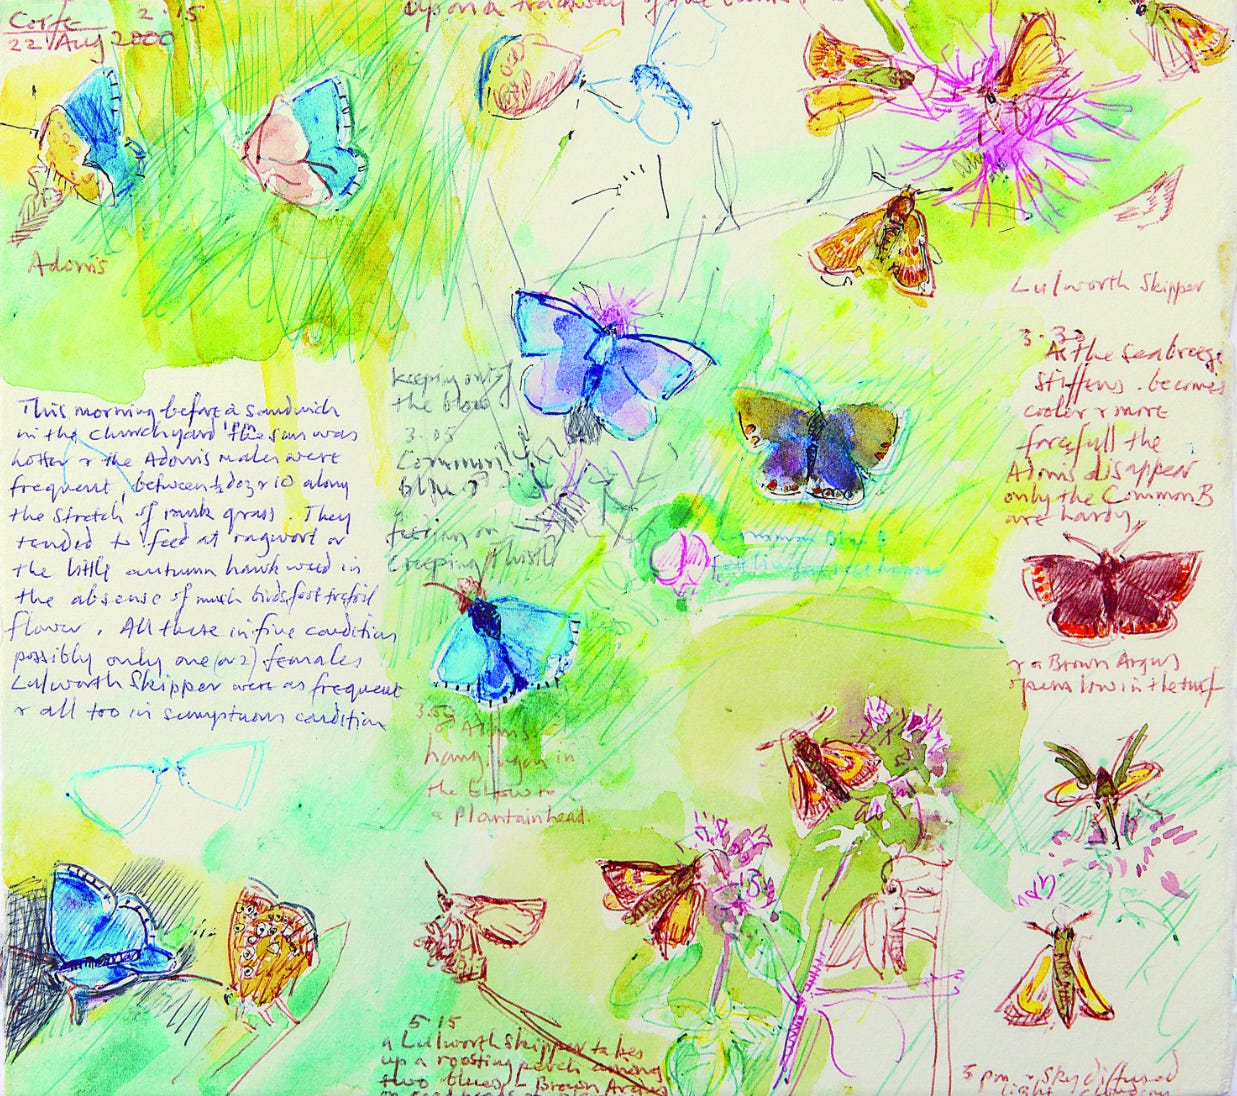 Corfe 2.15
22 Aug 2000
upon a trackway of the
Adonis
Lulworth Skipper
3.30
As the sea breeze
stiffens. becomes
cooler & more
forcefull the
Adonis disappear
only the Common B
are hardy
keeping out of
the blow
3.05
Common
blue
feeding on
Creeping Thistle
This morning before a sandwich
in the churchyard the sun was
hotter & the Adonis males were
frequent, between ½ doz & 10 along
the stretch of rank grass. They
tended to feed at ragwort or
the little autumn hawkweed in
the absense of much birdsfoot trefoil
flower. All these in fine condition
possibly only one (or 2) females
Lulworth Skipper were as frequent
& all too in sumptuous condition
Common blue
& a Brown Argus
opens low in the turf
3.50
Adonis
hang upon in
the blow to
a plantain head.
5 15
a Lulworth Skipper takes
up a roosting perch among
two blues & Brown Argus
5 pm & sky diffused
light